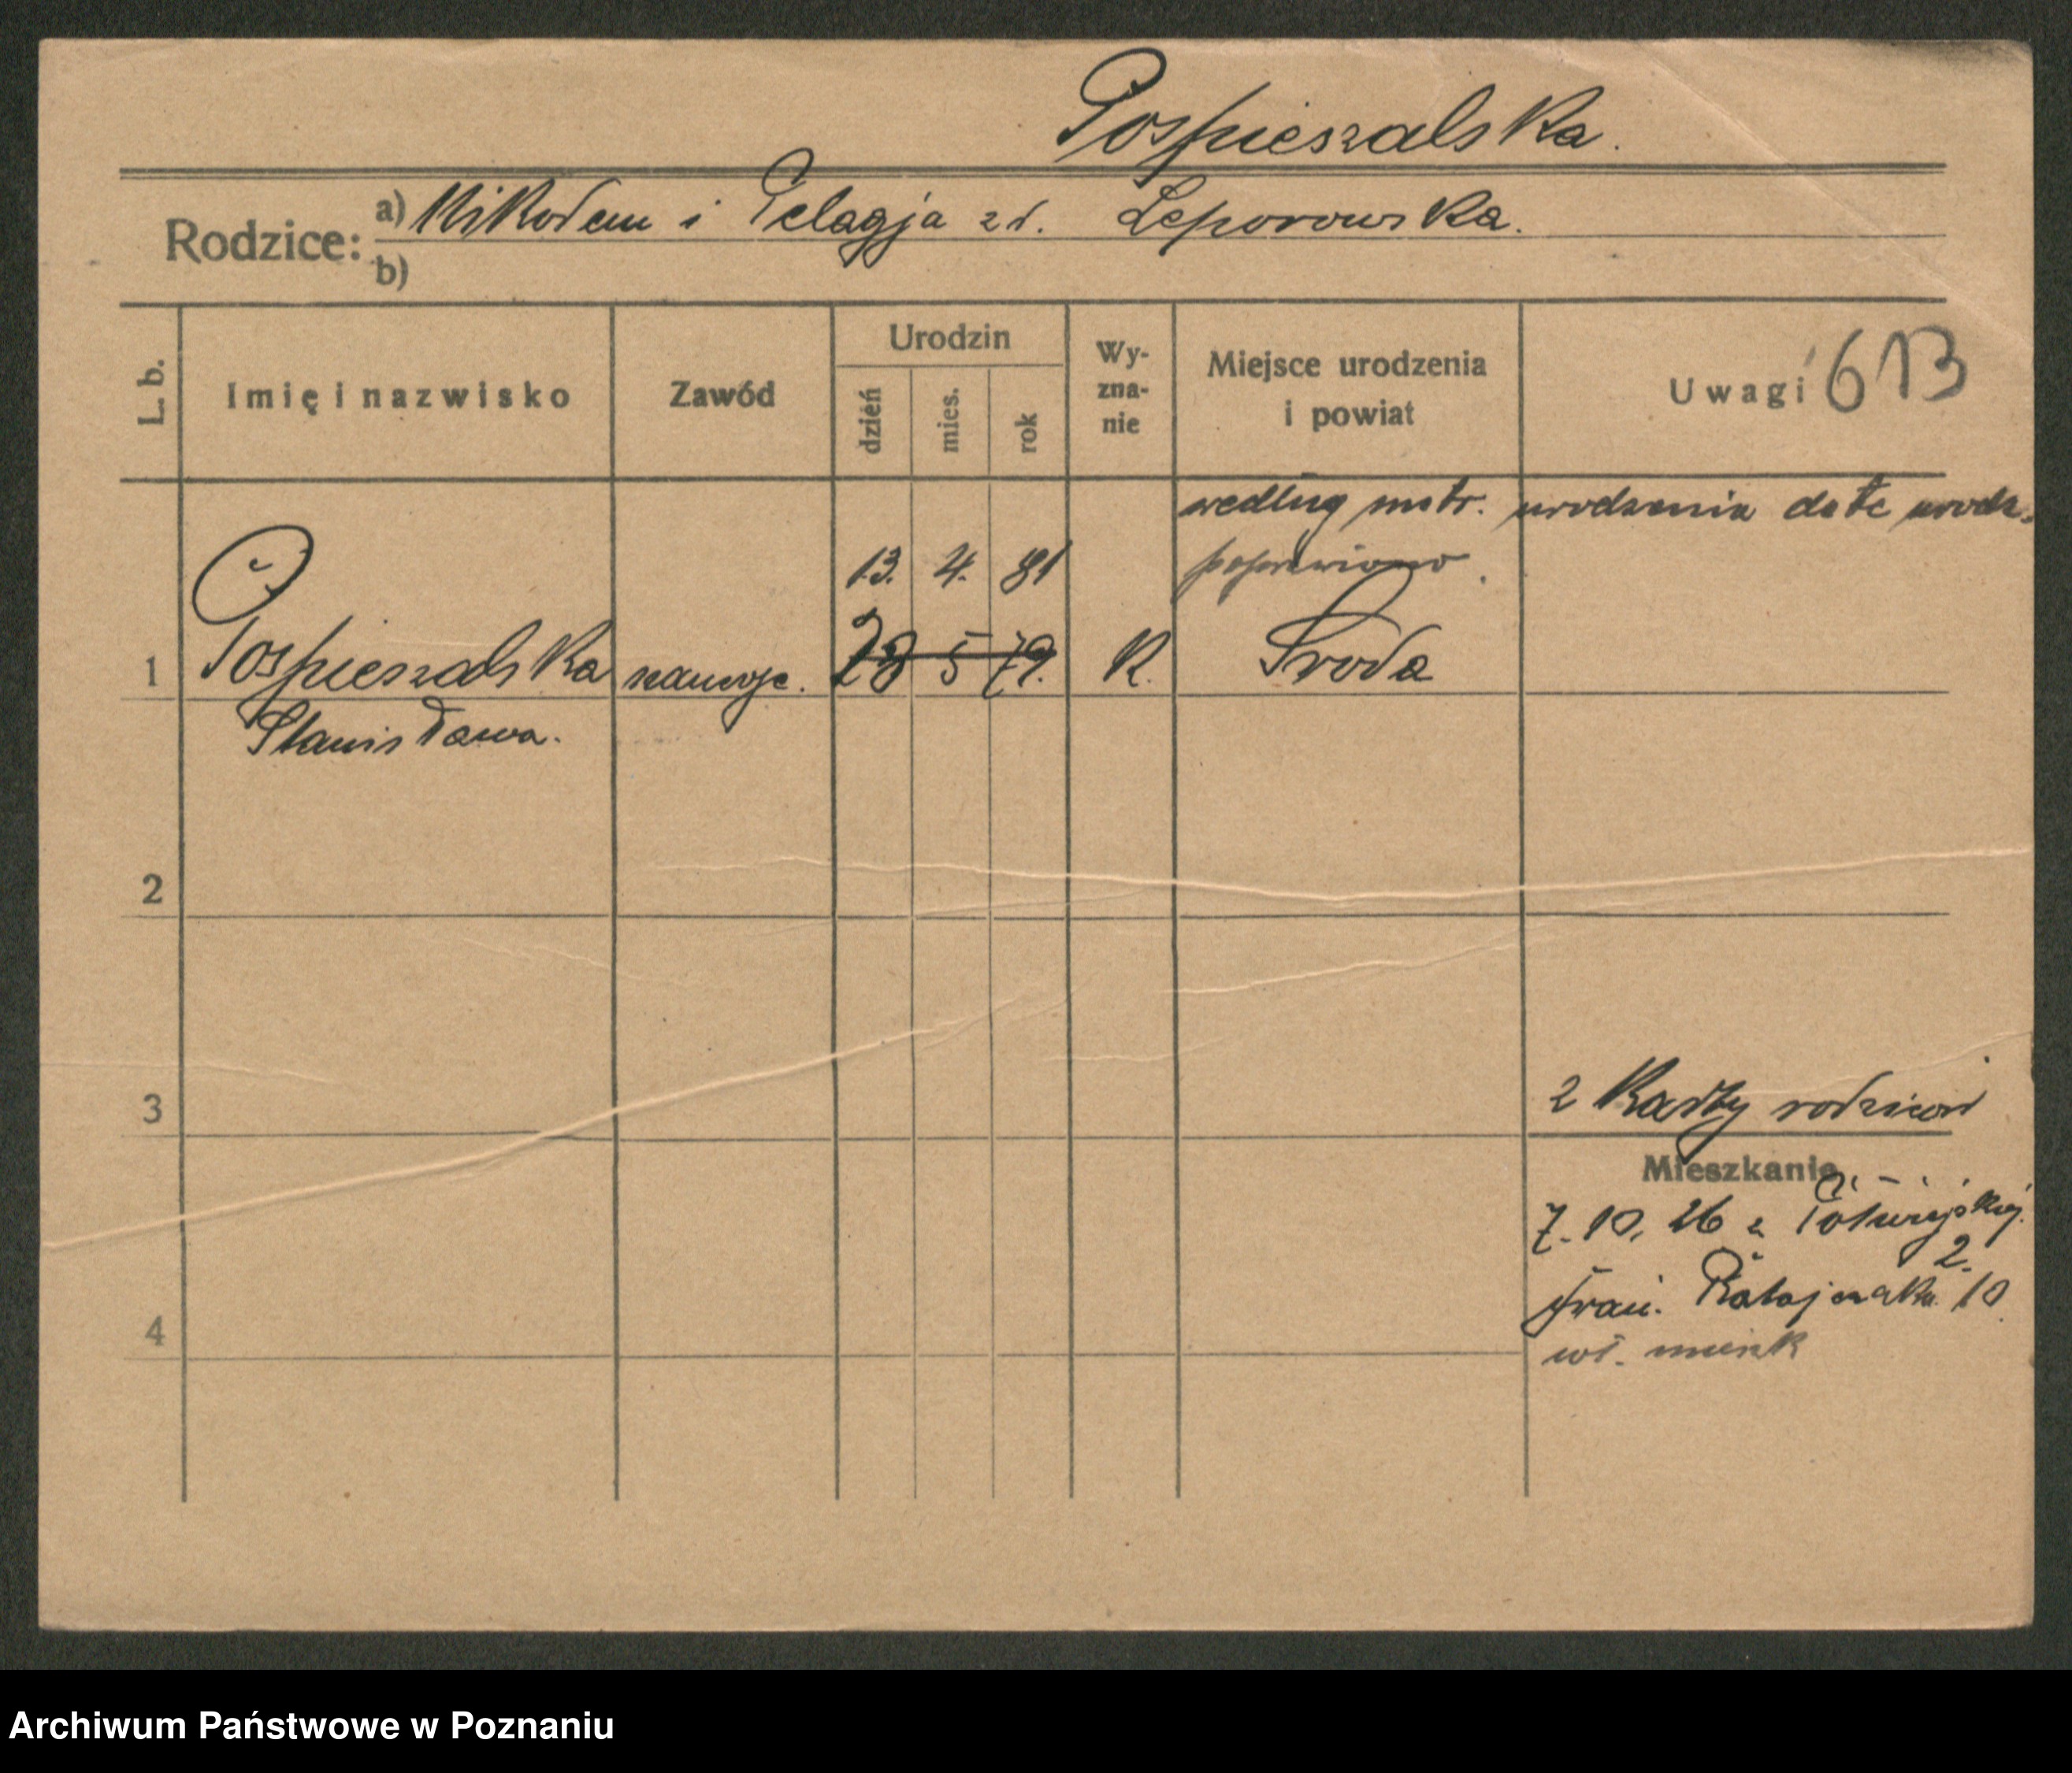 Pospieszalska.
Rodzice: a) Nikodem i Pelagja zd. Leporowska.
b)
L. b. Imię i nazwisko Zawód Urodzin dzień mies. rok Wyznanie Miejsce urodzenia i powiat Uwagi 613
według metr. urodzenia datę urodz.
13. 4. 81 poprawiono.
1 Pospieszalska 28 5 79. K. Środa
Stanisława.
2
3 2 Karty rodziców
Mieszkanie
7. 10. 26 z
2.
Fran. Ratajczaka 10
4 wł. mieszk
Archiwum Państwowe w Poznaniu